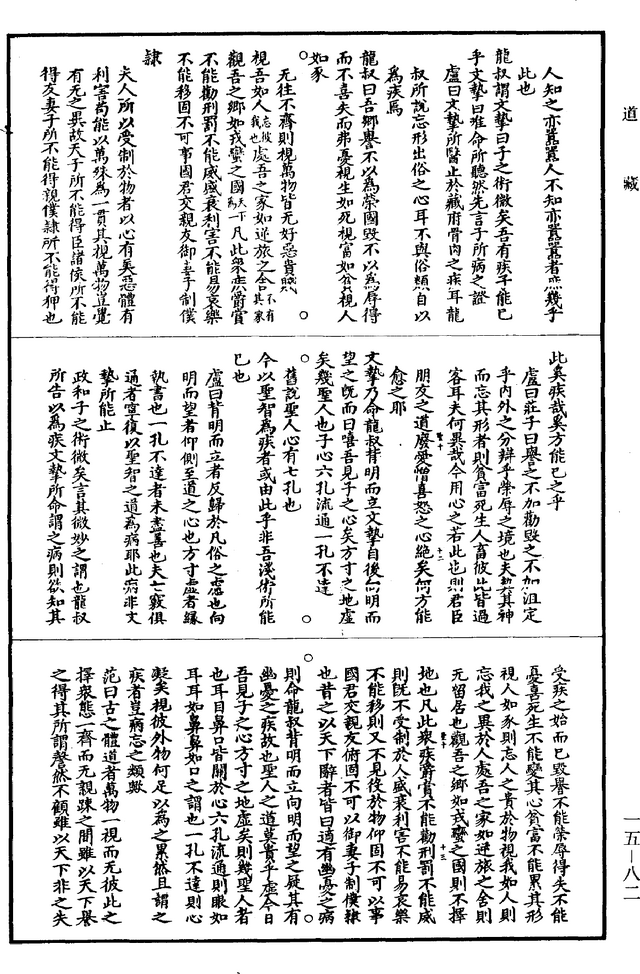 道藏
人知之亦囂囂人不知亦囂囂者庶幾乎
此也
龍叔謂文摯曰子之術微矣吾有疾子能已
乎文摯曰唯命所聽然先言子所病之證
盧曰文摯所醫止於藏府骨肉之疾耳龍
叔所說忘形出俗之心耳不與俗類自以
為疾焉
龍叔曰吾鄉譽不以為榮國毀不以為辱得
而不喜失而弗憂視生如死視富如貧視人
如豕
无往不齊則視萬物皆无好惡貴賤
視吾如人忘彼我也處吾之家如逆旅之舍不有其家
觀吾之鄉如戎蠻之國天下為凡此衆疾爵賞
不能勸刑罰不能威盛衰利害不能易哀樂
不能移固不可事國君交親友御妻子制僕
隸
夫人所以受制於物者以心有美惡體有
利害苟能以萬殊為一貫其視萬物豈覺
有无之異故天子所不能得臣諸侯所不能
得友妻子所不能得親僕隸所不能得狎也
此奚疾哉奚方能已之乎
盧曰莊子曰譽之不加勸毀之不加沮定
乎內外之分辨乎榮辱之境也夫契其神
而忘其形者則貧富死生人畜彼此皆過
客耳夫何異哉今用心之若此也則君臣
朋友之道廢愛憎喜怒之心絕矣何方能
愈之耶
文摯乃命龍叔背明而立文摯自後向明而
望之既而曰嘻吾見子之心矣方寸之地虛
矣幾聖人也子心六孔流通一孔不達
舊說聖人心有七孔也
今以聖智為疾者或由此乎非吾淺術所能
已也
盧曰背明而立者反歸於凡俗之慮也向
明而望者仰側至道之心也方寸虛者緣
執書也一孔不達者未盡善也夫七竅俱
通者寧復以聖智之道為病耶此病非文
摯所能止
政和子之術微矣言其微妙之謂也龍叔
所告以為疾文摯所命謂之病則欲知其
受疾之始而已毀譽不能榮辱得失不能
憂喜死生不能變其心貧富不能累其形
視人如豕則忘人之貴於物視我如人則
忘我之異於人處吾之家如逆旅之舍則
无留居也觀吾之鄉如戎蠻之國則不擇
地也凡此衆疾爵賞不能勸刑罰不能威
則既不受制於人盛衰利害不能易哀樂
不能移則又不見役於物仰固不可以事
國君交親友俯固不可以御妻子制僕隸
也昔之以天下辭者皆曰適有幽憂之病
則命龍叔背明而立向明而望之疑其有
幽憂之疾故也聖人之道莫貴乎虛今日
吾見子之心方寸之地虛矣則幾聖人者
也耳目鼻口皆關於心六孔流通則眼如
耳耳如鼻鼻如口之謂也一孔不達則心
凝矣視彼外物何足以為之累然且謂之
疾者豈病忘之類歟
范曰古之體道者萬物一視而无彼此之
擇衆態一齊而无親踈之間雖以天下譽
之得其所謂謷然不顧雖以天下非之失
一五—八二